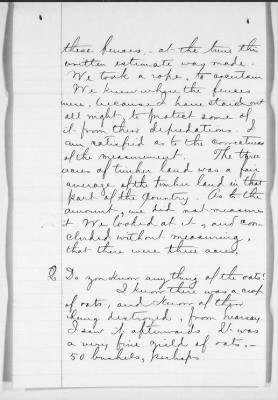 these fences, - at the time this
written estimate was made.
We took a rope, to ascertain.
We knew where the fences
were, because I have staid out
all night, to protect some of
it from their depredations. I
am satisfied as to the correctness
of the measurement. The three
acres of timber land was a fair
average of the timber land in that
part of the country. As to the
amount, we did not measure
it. We looked at it, and con
cluded without measuring,
that there were three acres.
Q Do you know anything of the oats?
I know there was a crop
of oats, and know of their
being destroyed, from hearsay.
I saw it afterwards. It was
a very fine yield of oats, -
50 bushels, perhaps.